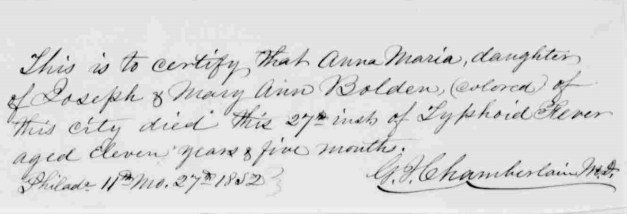 This is to certify that Anna Maria, daughter
of Joseph & Mary Ann Bolden, (colored) of
this city died this 27th inst of Typhoid Fever
aged eleven years & five month.
Philada 11th Mo. 27th 1852
G. P. Chamberlain M.D.